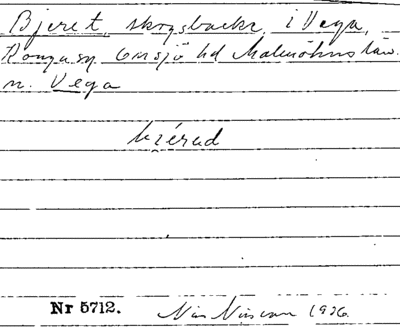 Bjeret, skogsbacke, i Vega,
Konga sn. Onsjö hd Malmöhus län.
n. Vega
Nr 5712. Nils Nilsson 1936.